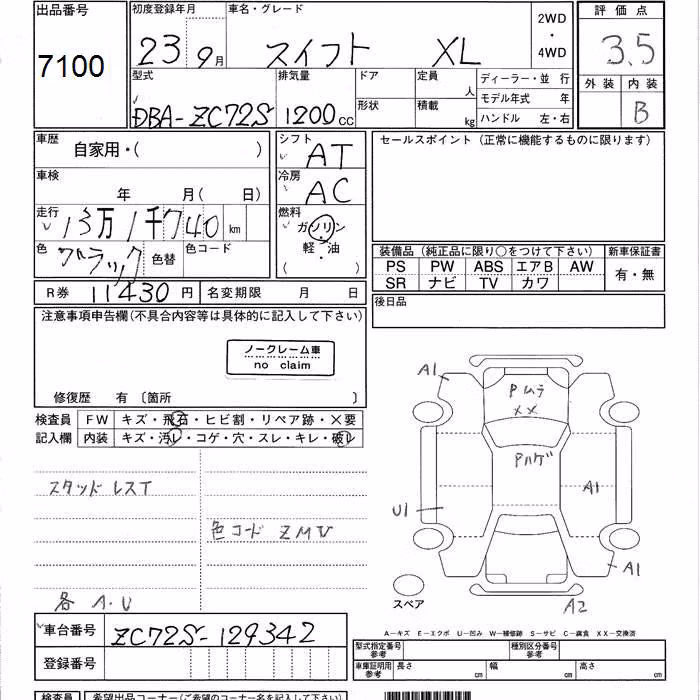 出品番号
7100
初度登録年月
23 9月
車名・グレード
スイフト XL
2WD
・
4WD
評価点
3.5
外装 内装
B
型式
DBA-ZC72S
排気量
1200cc
ドア
形状
定員
人
積載
kg
ディーラー・並 行
モデル年式 年
ハンドル 左・右
車歴
自家用・( )
シフト
AT
セールスポイント(正常に機能するものに限ります)
車検
年 月( 日)
冷房
AC
走行
13万1千740 km
燃料
ガソリン
・
軽・油
( )
色
ブラック
色替
色コード
装備品(純正品に限り○をつけて下さい)
新車保証書
PS PW ABS エアB AW
SR ナビ TV カワ
有・無
R券 11430円
名変期限 月 日
後日品
注意事項申告欄(不具合内容等は具体的に記入して下さい)
ノークレーム車
no claim
修復歴 有〔箇所 〕
検査員
記入欄
FW キズ・飛石・ヒビ割・リペア跡・×要
内装 キズ・汚レ・コゲ・穴・スレ・キレ・破レ
スタッドレスT
色コード ZMV
各 A.U
A1
Pムラ
××
Pハゲ
A1
U1
A1
スペア
A2
車台番号
ZC72S-129342
登録番号
A−キズ E−エクボ U−凹み W−補修跡 S−サビ C−腐食 XX−交換済
型式指定番号
参考
種別区分番号
参考
車庫証明用
参考
長さ cm
幅 cm
高さ cm
検査員
希望出品コーナー(ご希望のコーナー名を記入下さい)